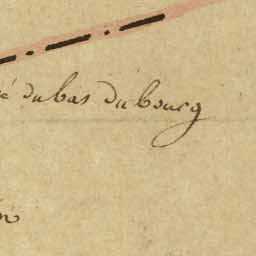 du bas du bourg